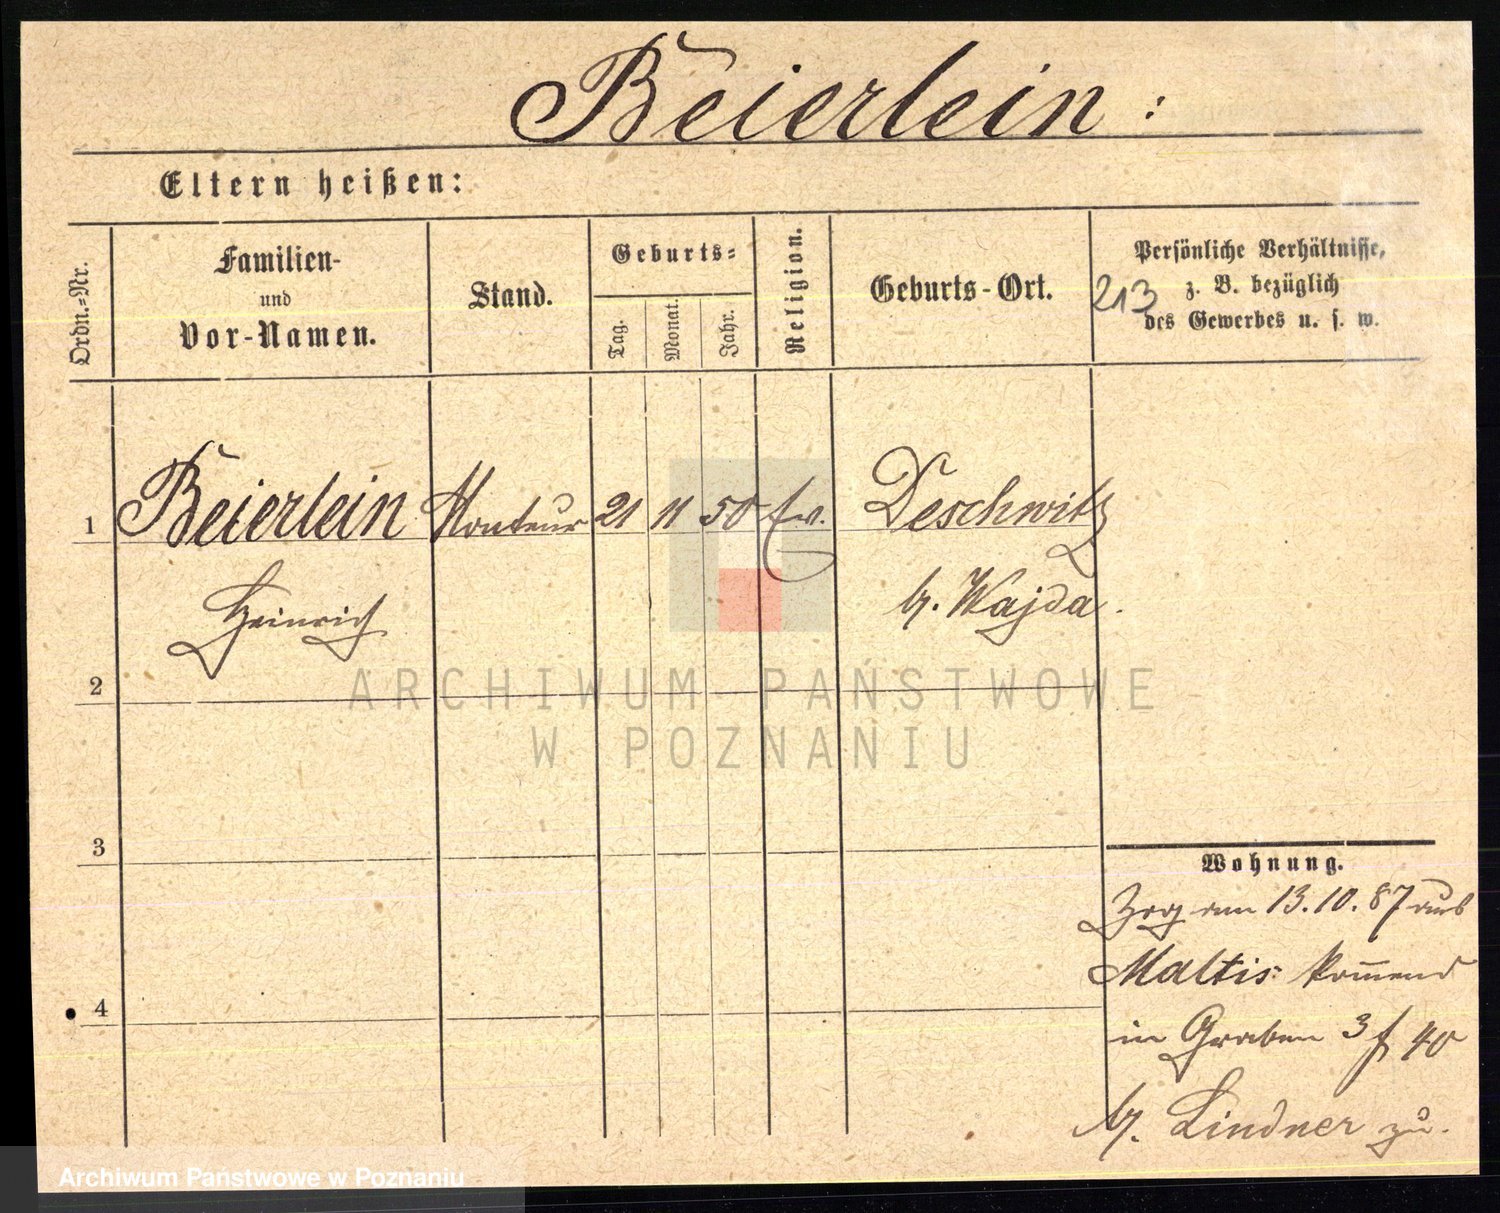 Beierlein:
Eltern heißen:
Ordn.=Nr.
Familien-
und
Vor-Namen.
Stand.
Geburts=
Tag.
Monat.
Jahr.
Religion.
Geburts-Ort.
Persönliche Verhältnisse,
z. B. bezüglich
des Gewerbes u. s. w.
213
1 Beierlein Monteur 21 11 50 Ev. Deschwitz
Heinrich b/. Wajda.
2
3
4
Wohnung.
Zog am 13.10.87 aus
Maltis: kom̅end
in Graben 3 f 40
b/. Lindner zu.
ARCHIWUM PAŃSTWOWE
W POZNANIU
Archiwum Państwowe w Poznaniu